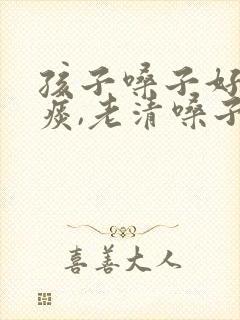 孩子嗓子好
痰,老清嗓子
喜善大人